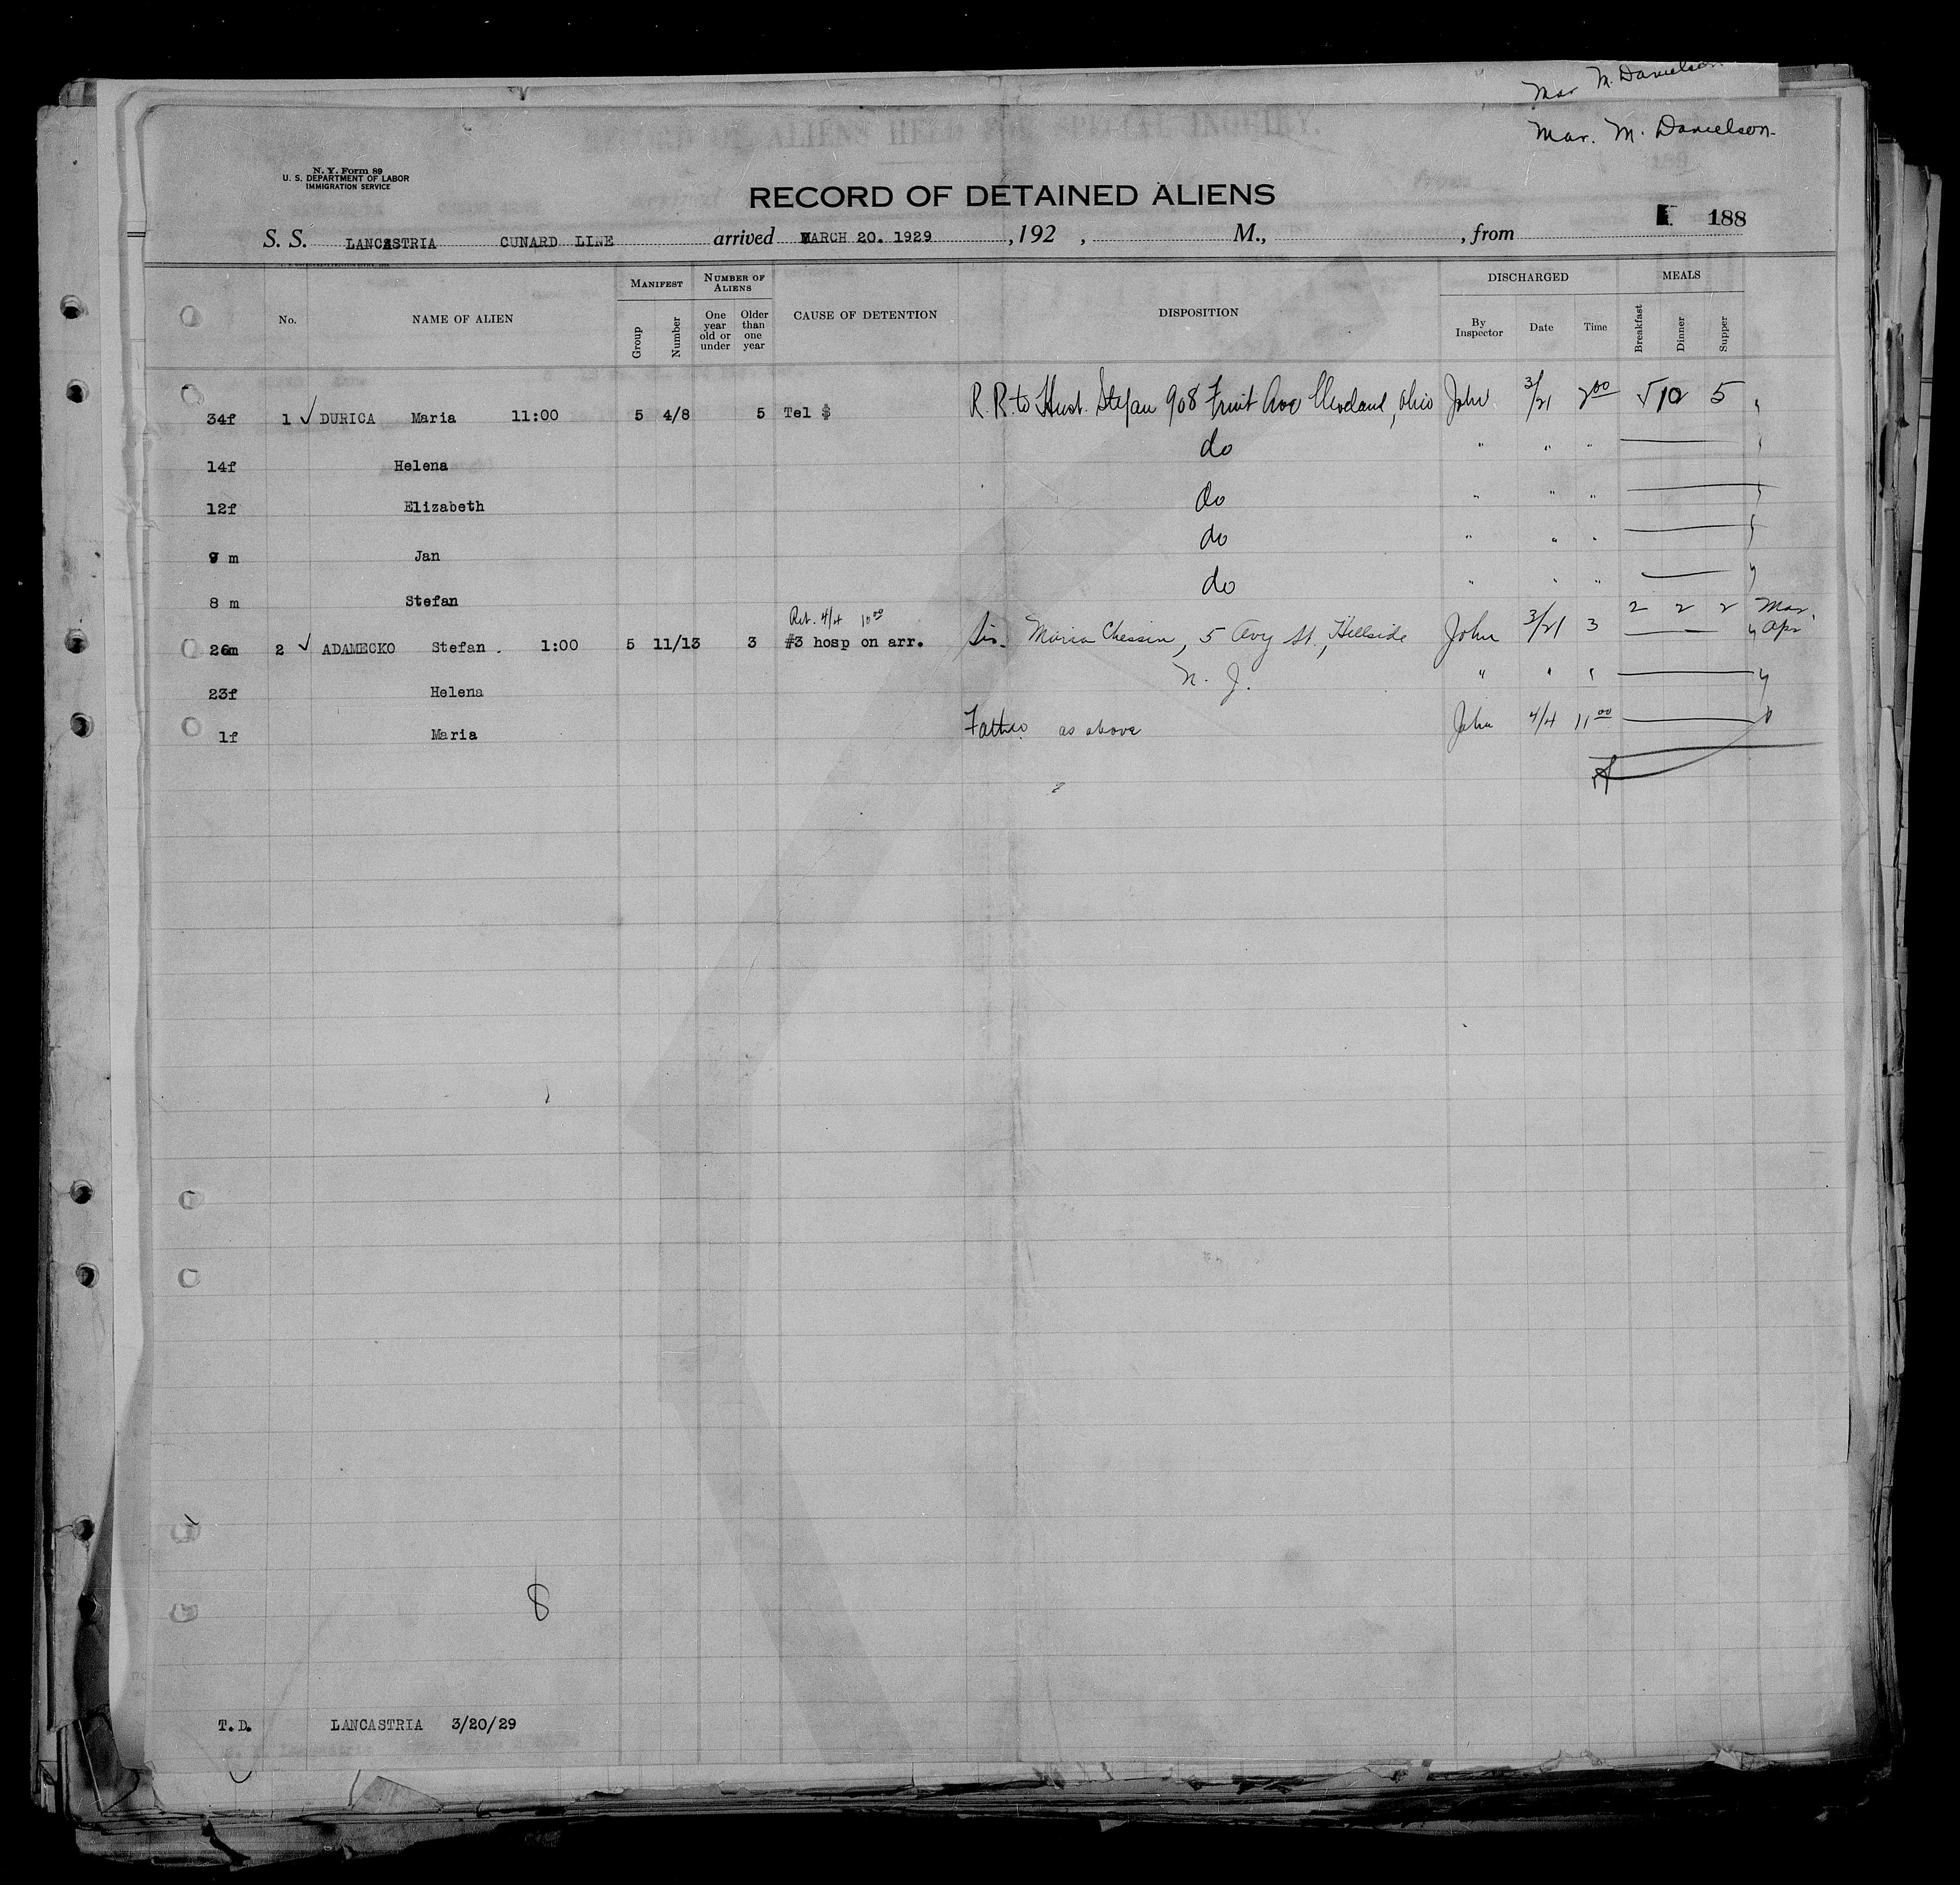 Mar M. Danielson
Mar. M. Danielson.
RECORD OF ALIENS HELD FOR SPECIAL INQUIRY.
N. Y. Form 89
U. S. DEPARTMENT OF LABOR
IMMIGRATION SERVICE
RECORD OF DETAINED ALIENS
188
S. S. LANCASTRIA CUNARD LINE arrived MARCH 20. 1929 , 192 , M., , from
No. NAME OF ALIEN MANIFEST Group Number NUMBER OF ALIENS One year old or under Older than one year CAUSE OF DETENTION DISPOSITION DISCHARGED By Inspector Date Time MEALS Breakfast Dinner Supper
34f 1 ✓ DURICA Maria 11:00 5 4/8 5 Tel $ R.R. to Husb. Stefan 908 Fruit Ave Cleveland, Ohio John 3/21 2 00 5 10 5
14f Helena do " " "
12f Elizabeth do " " "
9 m Jan do " " "
8 m Stefan do " " "
Ret. 4/4 10 00
2 2 2 Mar.
26m 2 ✓ ADAMECKO Stefan . 1:00 5 11/13 3 #3 hosp on arr. Sis. Maria Chessin, 5 Avy St., Hillside John 3/21 3 Apr
23f Helena N. J. " " "
1f Maria Father as above John 4/4 11 00
8
T.D. LANCASTRIA 3/20/29